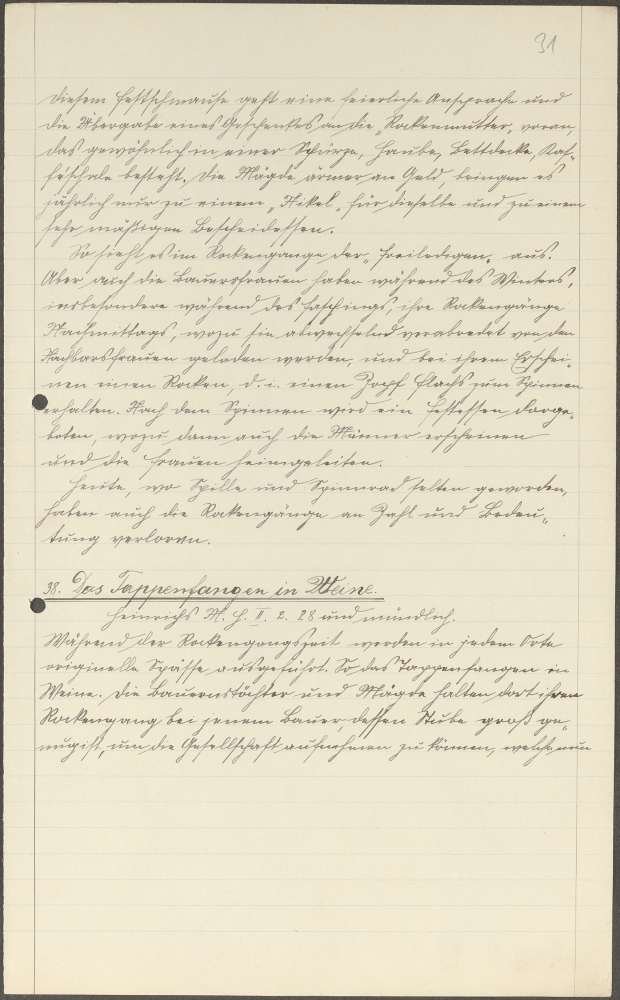 31
diesem Festschmause geht eine feierliche Ansprache und
die Übergabe eines Geschenkes an die Rockenmutter, voran,
das gewöhnlich in einer Schürze, Haube, Bettdecke, Kaf„
feschale besteht. Die Mägde ärmer an Geld, bringen es
jährlich nur zu einem „Stikel„ für dieselbe und zu einem
sehr mäßigen Bescheidessen.
So sieht es im Rockengange der „Freiledigen„ aus.
Aber auch die Bauersfrauen haben während des Winters,
insbesondere während des Faschings, ihre Rockengänge
Nachmittags, wozu sie abwechselnd verabredet von den
Nachbarsfrauen geladen werden, und bei ihrem Erschei„
nen einen Rocken, d. i. einen Zopf Flachs zum Spinnen
erhalten. Nach dem Spinnen wird ein Festessen darge„
boten, wozu dann auch die Männer erscheinen
und die Frauen heimgeleiten.
Heute, wo Spille und Spinnrad selten geworden,
haben auch die Rockengänge an Zahl und Bedeu„
tung verloren.
38. Das Tappenfangen in Meine.
Heinrichs M. H. II. 2. 28 und mündlich.
Während der Rockengangszeit werden in jedem Orte
originelle Spässe ausgeführt. So das Tappenfangen in
Meine. Die Bauernstöchter und Mägde halten dort ihren
Rockengang bei jenem Bauer, dessen Stube groß ge„
nug ist, um die Gesellschaft aufnehmen zu können, welche nun